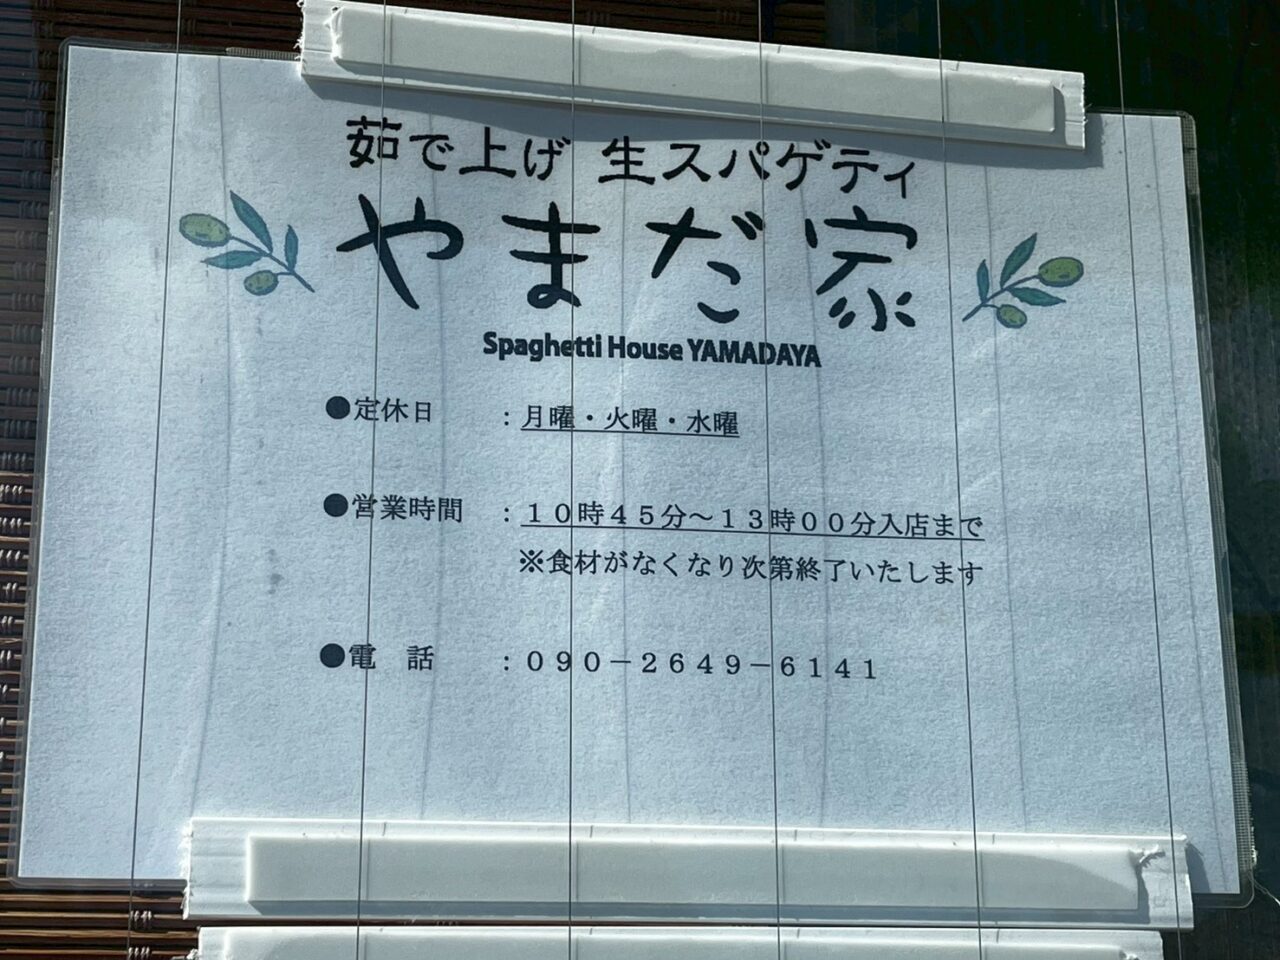 茹で上げ 生スパゲティ
やまだ家
Spaghetti House YAMADAYA
●定休日　：月曜・火曜・水曜
●営業時間　：１０時４５分～１３時００分入店まで
※食材がなくなり次第終了いたします
●電　話　：０９０－２６４９－６１４１